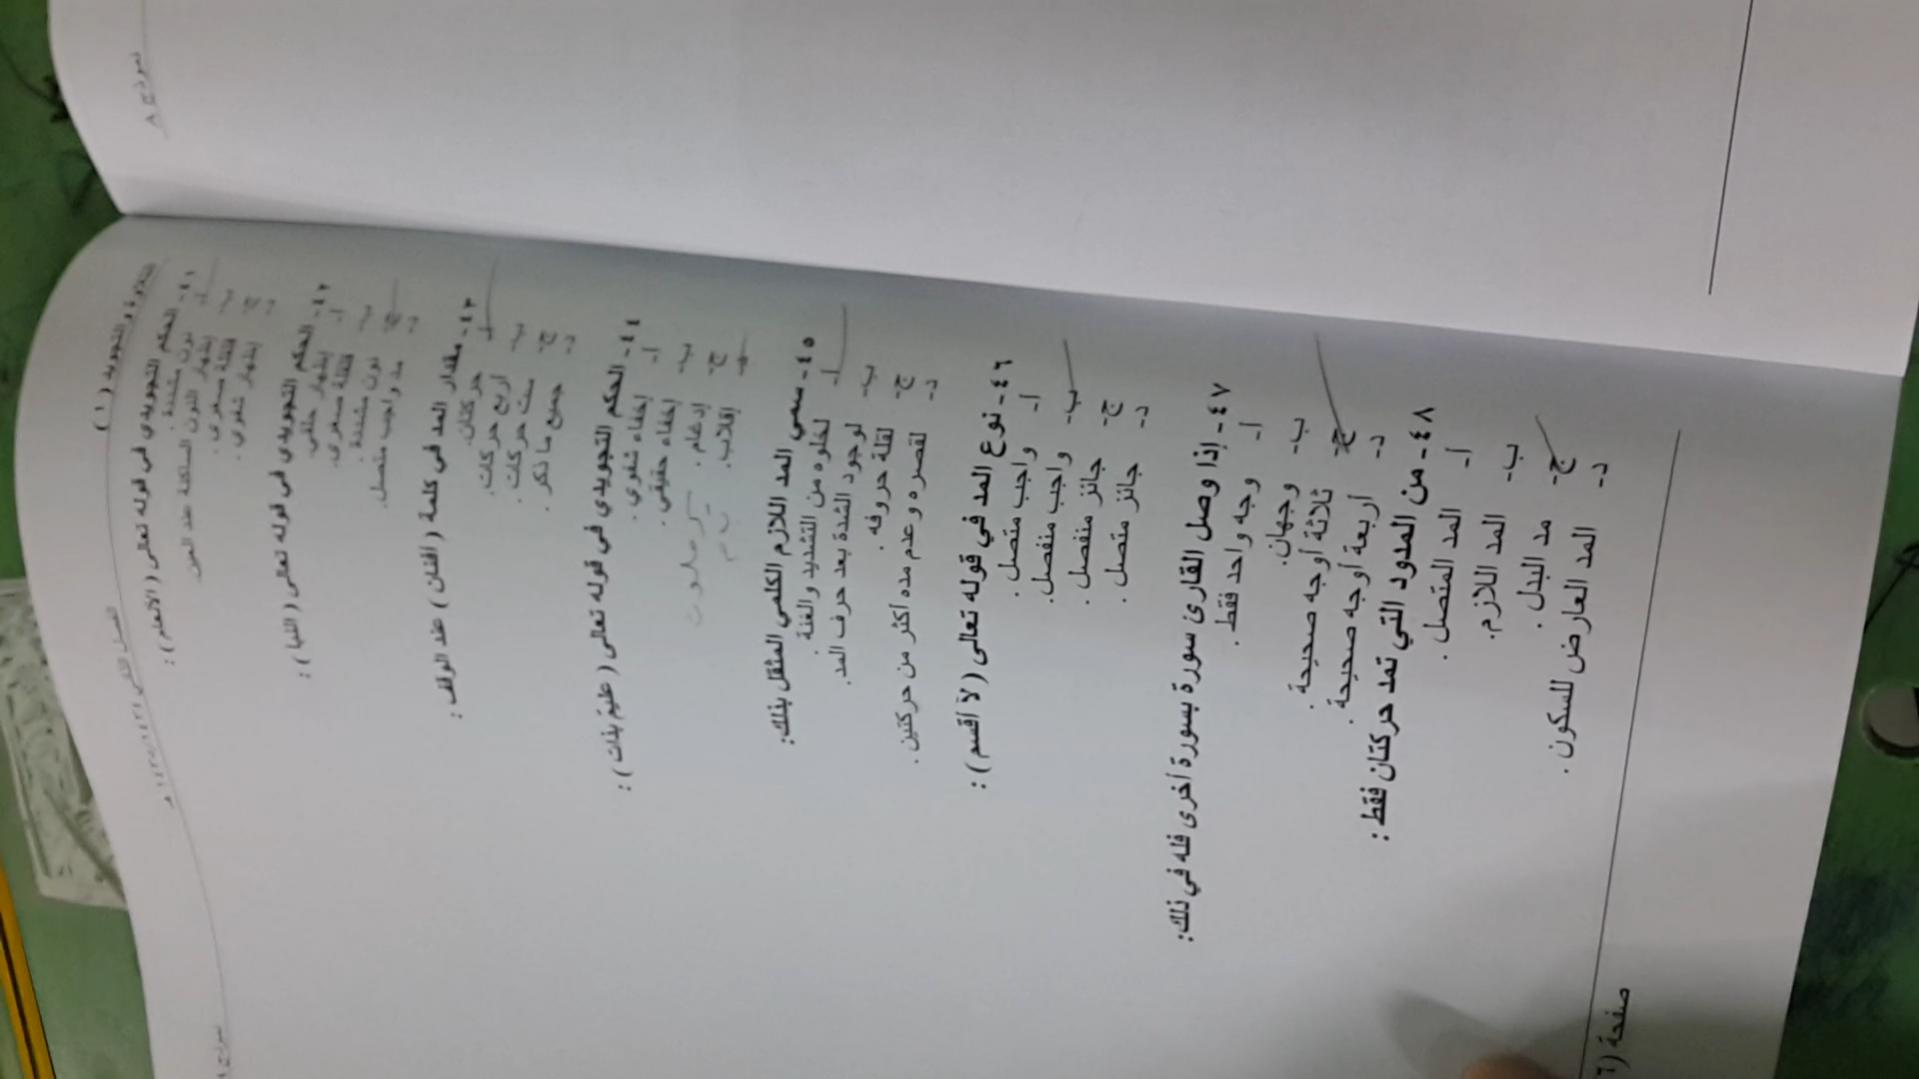 نموذج A
التلاوة والتجويد (١)
٤١- الحكم التجويدي في قوله تعالى (الأنعام) :
أ- نون مشددة.
ب- إظهار النون الساكنة عند العين.
ج- قلقلة صغرى.
د- إظهار شفوي.
٤٢- الحكم التجويدي في قوله تعالى (النبأ) :
أ- إظهار حلقي.
ب- قلقلة صغرى.
ج- نون مشددة.
د- مد واجب متصل.
٤٣- مقدار المد في كلمة (أفنان) عند الوقف :
أ- حركتان.
ب- أربع حركات.
ج- ست حركات.
د- جميع ما ذكر.
٤٤- الحكم التجويدي في قوله تعالى (عليم بذات) :
أ- إخفاء شفوي.
ب- إخفاء حقيقي.
ج- إدغام.
د- إقلاب.
٤٥- سمي المد اللازم الكلمي المثقل بذلك:
أ- لخلوه من التشديد والغنة.
ب- لوجود الشدة بعد حرف المد.
ج- لقلة حروفه.
د- لقصره وعدم مده أكثر من حركتين.
٤٦- نوع المد في قوله تعالى (لآ أقسم) :
أ- واجب متصل.
ب- واجب منفصل.
ج- جائز منفصل.
د- جائز متصل.
٤٧- إذا وصل القارئ سورة بسورة أخرى فله في ذلك:
أ- وجه واحد فقط.
ب- وجهان.
ج- ثلاثة أوجه صحيحة.
د- أربعة أوجه صحيحة.
٤٨- من المدود التي تمد حركتان فقط:
أ- المد المتصل.
ب- المد اللازم.
ج- مد البدل.
د- المد العارض للسكون.
صفحة (٦